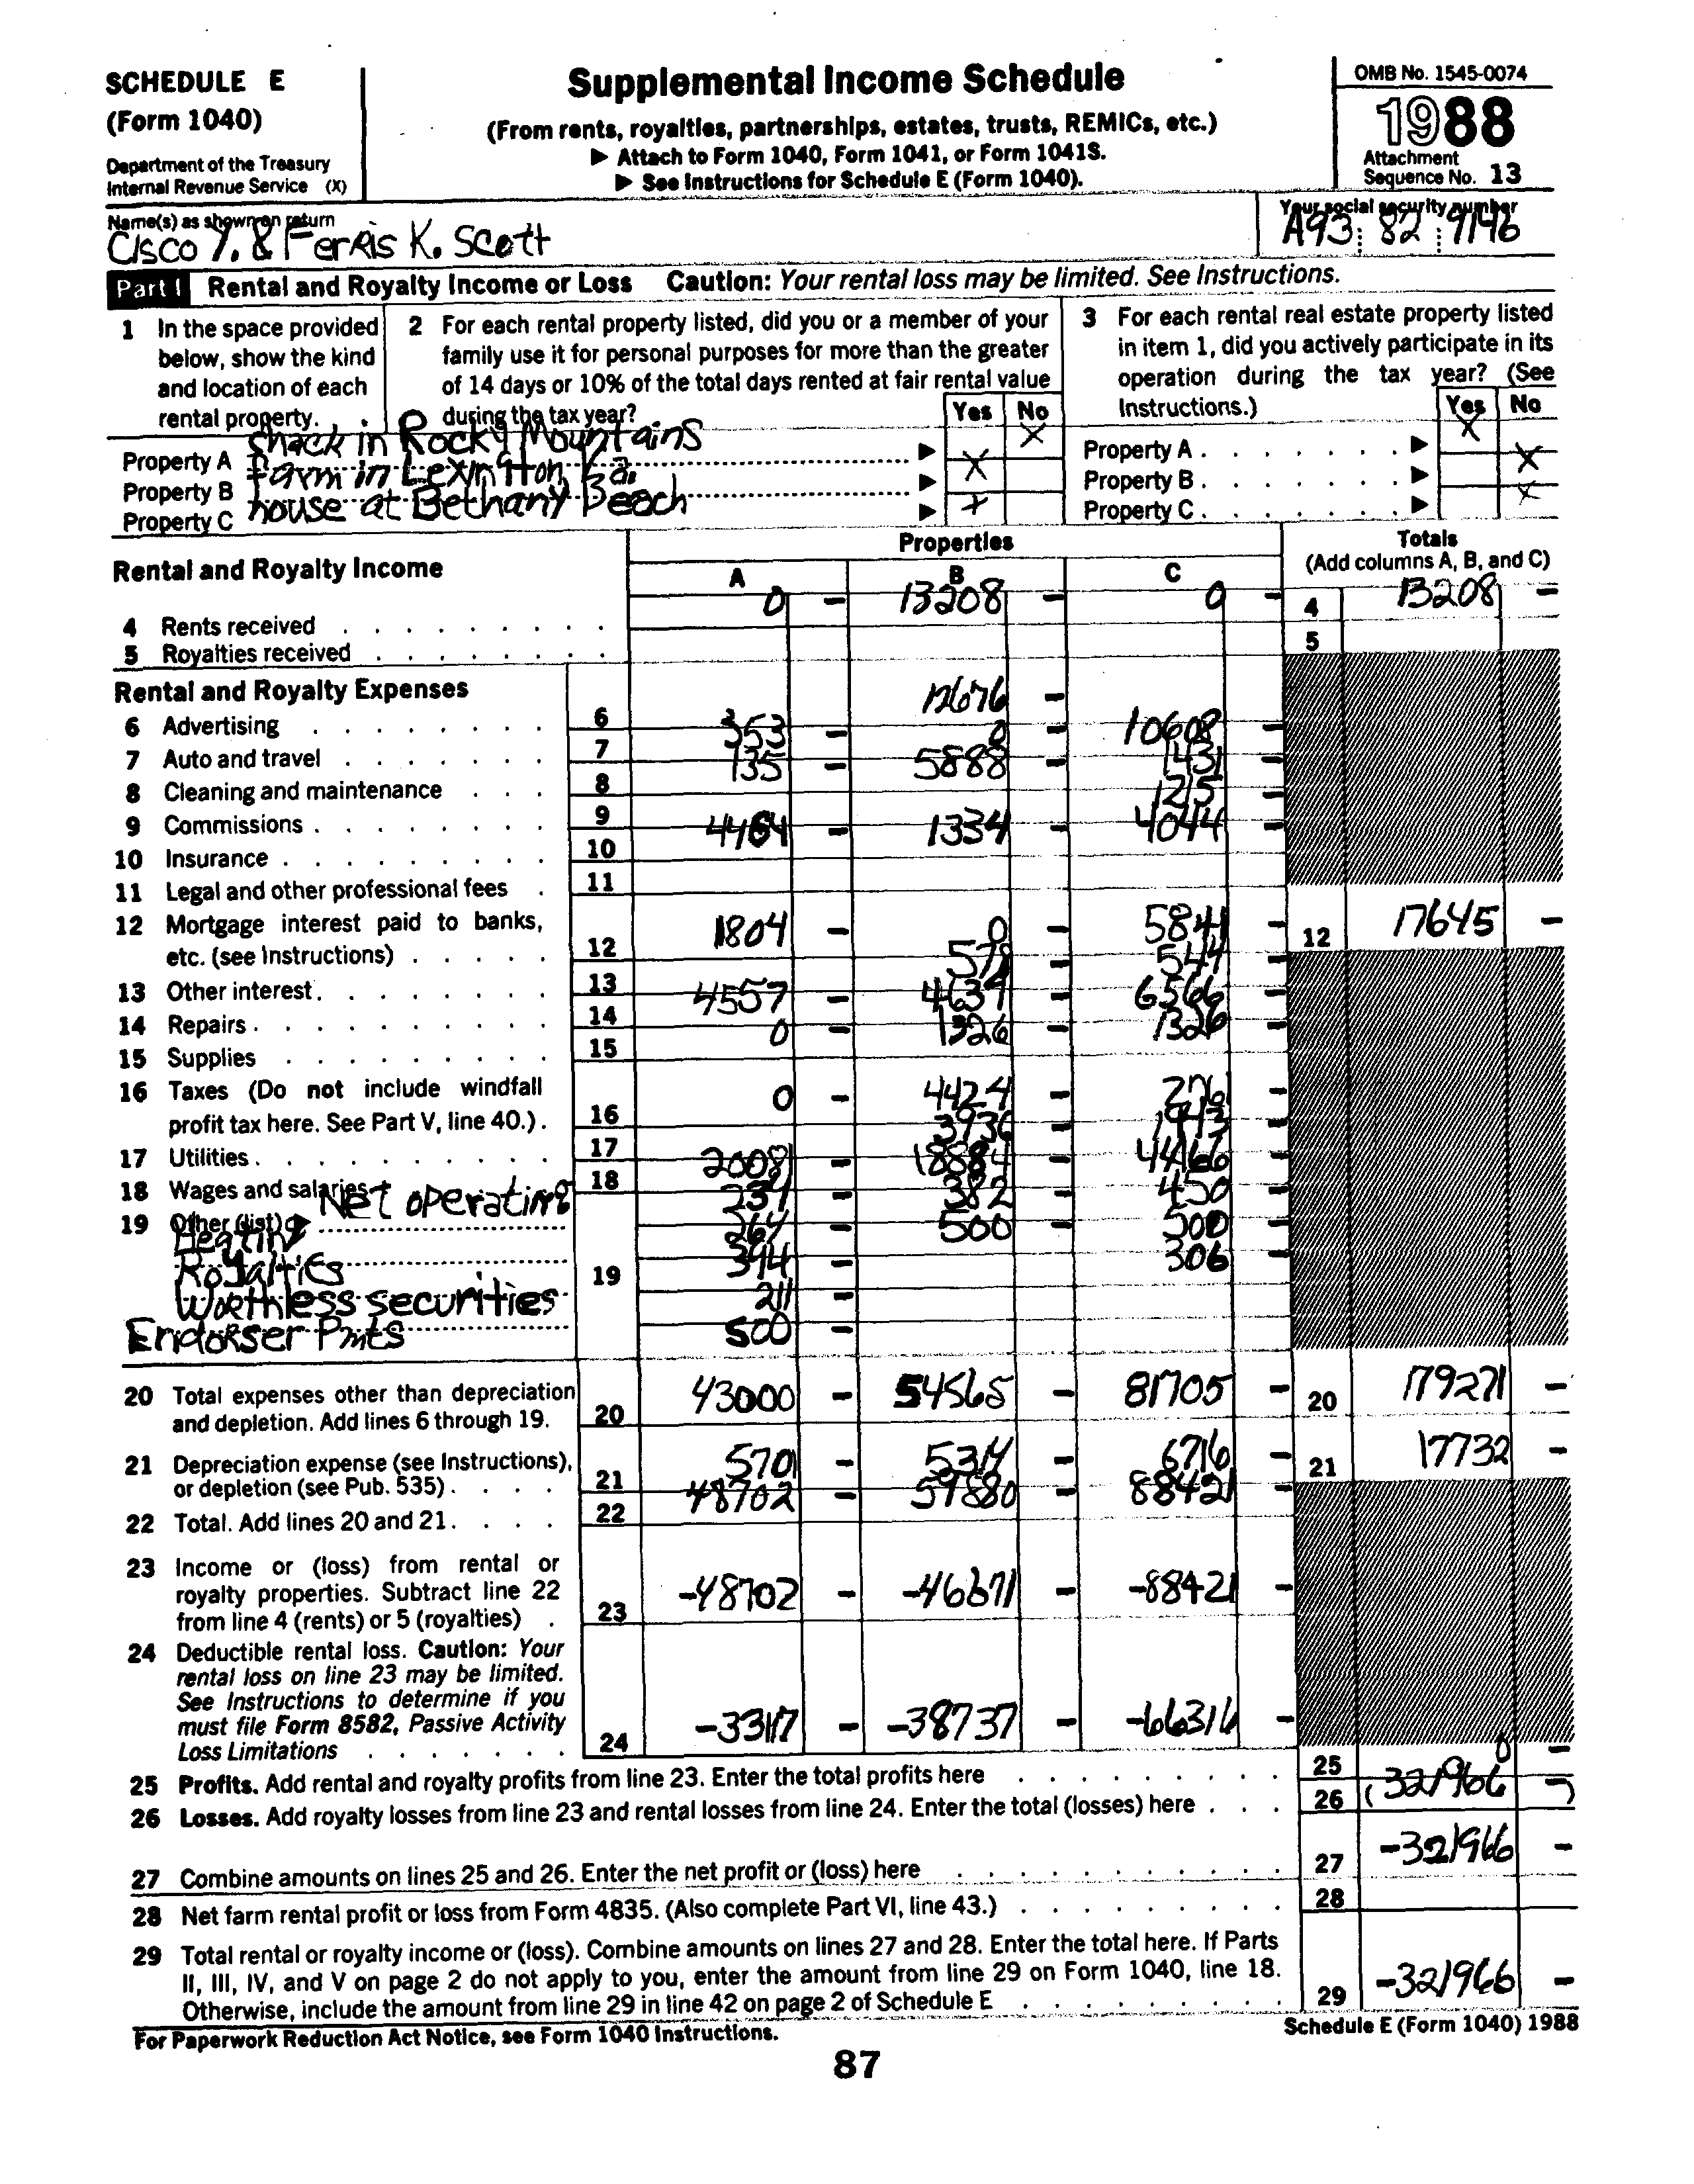 SCHEDULE E
(Form 1040)
Department of the Treasury
Internal Revenue Service (X)
Supplemental Income Schedule
(From rents, royalties, partnerships, estates, trusts, REMICs, etc.)
▶ Attach to Form 1040, Form 1041, or Form 1041S.
▶ See Instructions for Schedule E (Form 1040).
OMB No. 1545-0074
1988
Attachment
Sequence No. 13
Name(s) as shown on return
Cisco Y. & Ferris K. Scott
Your social security number
A93 82 9146
Part I Rental and Royalty Income or Loss Caution: Your rental loss may be limited. See Instructions.
1 In the space provided below, show the kind and location of each rental property.
2 For each rental property listed, did you or a member of your family use it for personal purposes for more than the greater of 14 days or 10% of the total days rented at fair rental value during the tax year?
Yes No
3 For each rental real estate property listed in item 1, did you actively participate in its operation during the tax year? (See Instructions.)
Yes No
Property A shack in Rocky Mountains ▶ X Property A . ▶ X
Property B farm in Lexington, Va. ▶ X Property B . ▶ X
Property C house at Bethany Beach ▶ X Property C . ▶ X
Rental and Royalty Income
Properties
A B C
Totals
(Add columns A, B, and C)
4 Rents received 0 - 13208 - 0 - 4 13208 -
5 Royalties received 5
Rental and Royalty Expenses
12676 -
6 Advertising 6 353 - 0 - 10608 -
7 Auto and travel 7 135 - 5888 - 1431 -
8 Cleaning and maintenance 8 1215 -
9 Commissions 9 4464 - 1334 - 4044 -
10 Insurance 10
11 Legal and other professional fees 11
12 Mortgage interest paid to banks, etc. (see Instructions) 12 11804 - 0 - 5841 - 12 17645 -
578 - 544 -
13 Other interest 13 4557 - 4639 - 6566 -
14 Repairs 14 0 - 1326 - 1326
15 Supplies 15
16 Taxes (Do not include windfall profit tax here. See Part V, line 40.) 16 0 - 4424 - 276 -
3936 - 1943 -
17 Utilities 17 2008 - 18884 - 44166 -
18 Wages and salaries 18 234 - 382 - 450 -
19 Other (list) ▶ Net operating 264 - 500 - 500 -
Heating
Royalties 19 394 - 306 -
Worthless securities 211 -
Endorser Pmts 500 -
20 Total expenses other than depreciation and depletion. Add lines 6 through 19. 20 43000 - 54565 - 81705 - 20 179271 -
21 Depreciation expense (see Instructions), or depletion (see Pub. 535) 21 5701 - 5314 - 6716 - 21 17732 -
22 Total. Add lines 20 and 21 22 48702 - 59880 - 88421 -
23 Income or (loss) from rental or royalty properties. Subtract line 22 from line 4 (rents) or 5 (royalties) 23 -48702 - -46671 - -88421 -
24 Deductible rental loss. Caution: Your rental loss on line 23 may be limited. See Instructions to determine if you must file Form 8582, Passive Activity Loss Limitations 24 -3317 - -38737 - -66316 -
25 Profits. Add rental and royalty profits from line 23. Enter the total profits here 25 0 -
26 Losses. Add royalty losses from line 23 and rental losses from line 24. Enter the total (losses) here 26 (321966 -)
27 Combine amounts on lines 25 and 26. Enter the net profit or (loss) here 27 -321966 -
28 Net farm rental profit or loss from Form 4835. (Also complete Part VI, line 43.) 28
29 Total rental or royalty income or (loss). Combine amounts on lines 27 and 28. Enter the total here. If Parts II, III, IV, and V on page 2 do not apply to you, enter the amount from line 29 on Form 1040, line 18. Otherwise, include the amount from line 29 in line 42 on page 2 of Schedule E 29 -321966 -
For Paperwork Reduction Act Notice, see Form 1040 Instructions.
Schedule E (Form 1040) 1988
87